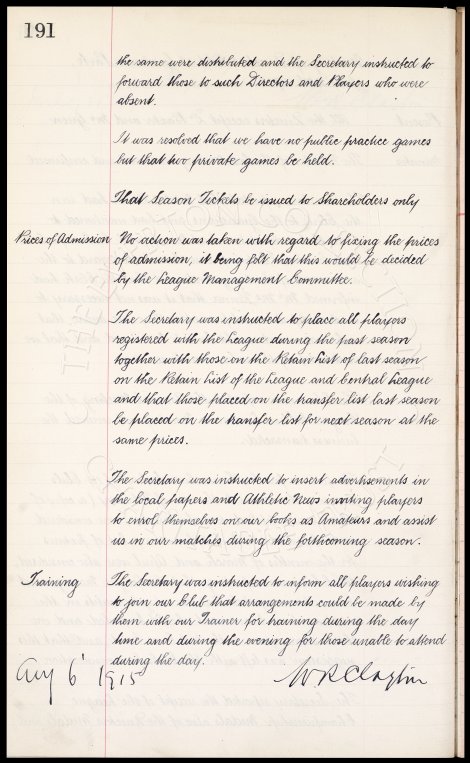 191
the same were distributed and the Secretary instructed to
forward those to such Directors and Players who were
absent.
It was resolved that we have no public practice games
but that two private games be held.
That Season Tickets be issued to Shareholders only
Prices of Admission No action was taken with regard to fixing the prices
of admission, it being felt that this would be decided
by the League Management Committee.
The Secretary was instructed to place all players
registered with the League during the past season
together with those on the Retain List of last season
on the Retain List of the League and Central League
and that those placed on the transfer list last season
be placed on the transfer list for next season at the
same prices.
The Secretary was instructed to insert advertisements in
the local papers and Athletic News inviting players
to enrol themselves on our books as Amateurs and assist
us in our matches during the forthcoming season.
Training The Secretary was instructed to inform all players wishing
to join our Club that arrangements could be made by
them with our Trainer for training during the day
time and during the evening for those unable to attend
during the day.
Aug 6 1915 W R Clayton